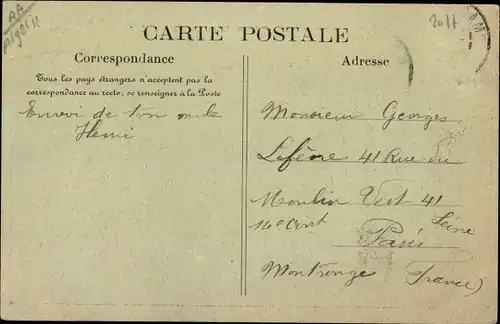 AA
Alger
2011
CARTE POSTALE
Correspondance
Tous les pays étrangers n'acceptent pas la
correspondance au recto, se renseigner à la Poste
Envoi de ton oncle
Henri
Adresse
Monsieur Georges
Lefène 41 Rue du
Moulin Vert 41
14e Arrt Seine
Paris
Montrouge France)